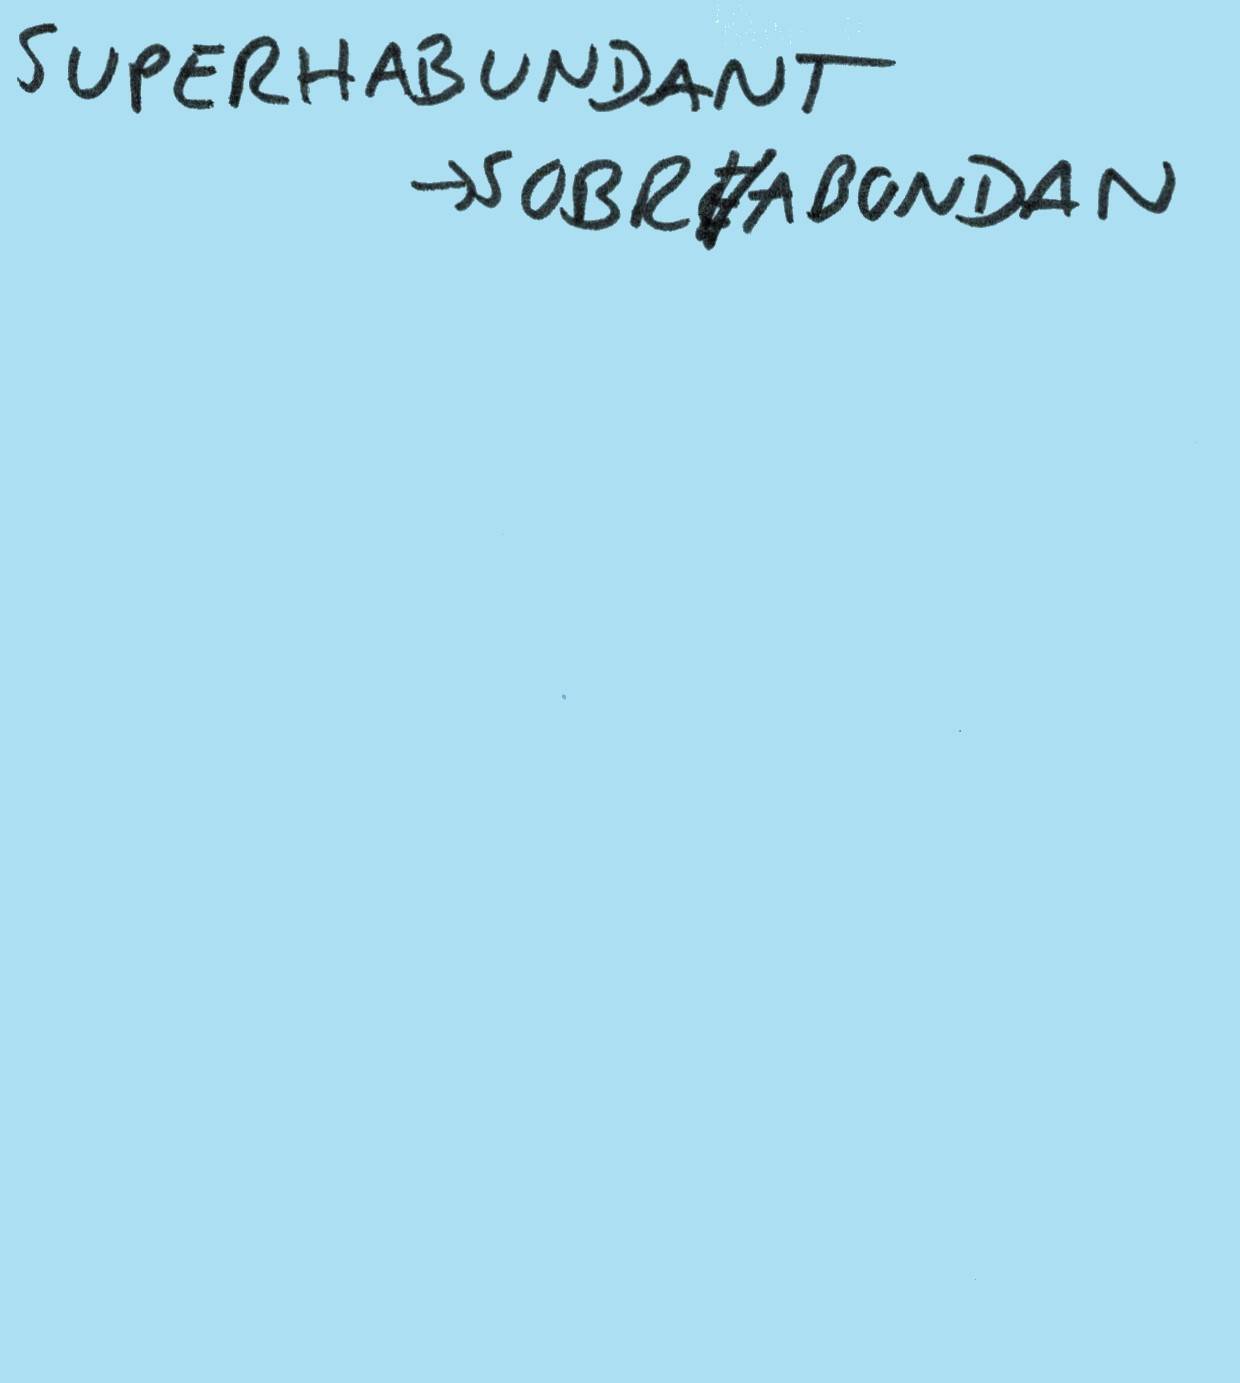 SUPERHABUNDANT
→SOBRABONDAN